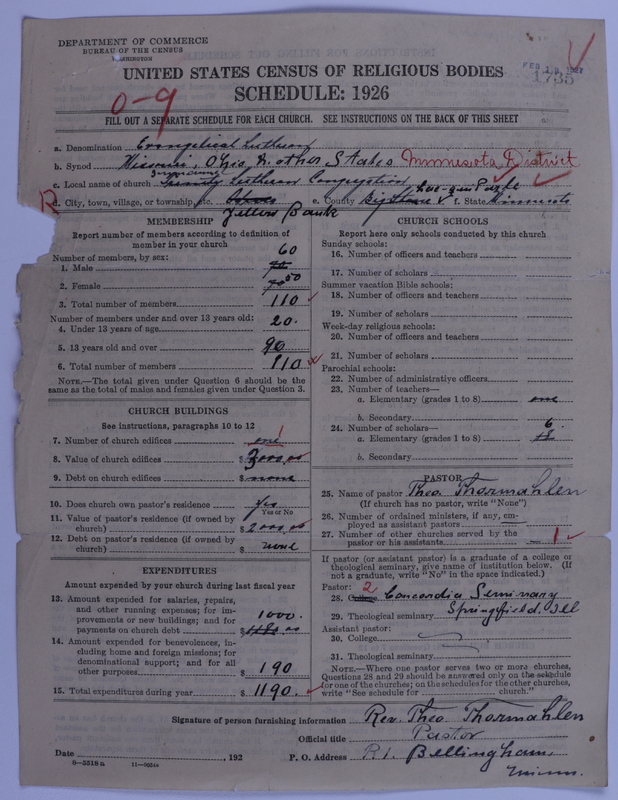 DEPARTMENT OF COMMERCE
BUREAU OF THE CENSUS
WASHINGTON
FEB 1927
1735
UNITED STATES CENSUS OF RELIGIOUS BODIES
SCHEDULE: 1926
0-9
FILL OUT A SEPARATE SCHEDULE FOR EACH CHURCH. SEE INSTRUCTIONS ON THE BACK OF THIS SHEET
a. Denomination Evangelical Lutheran
b. Synod Missouri, Ohio & other States Minnesota District
c. Local name of church Immanuel Trinity Lutheran Congregation
R
d. City, town, village, or township, etc. Yellow Bank e. County Lac-qui-Parle Big Stone f. State Minnesota
MEMBERSHIP
Report number of members according to definition of
member in your church
Number of members, by sex:
1. Male 60
2. Female 50
3. Total number of members 110
Number of members under and over 13 years old:
4. Under 13 years of age 20.
5. 13 years old and over 90
6. Total number of members 110
NOTE.—The total given under Question 6 should be the
same as the total of males and females given under Question 3.
CHURCH BUILDINGS
See instructions, paragraphs 10 to 12
7. Number of church edifices one 1
8. Value of church edifices $3000.00
9. Debt on church edifices $none
10. Does church own pastor's residence Yes
Yes or No
11. Value of pastor's residence (if owned by
church) $2000.00
12. Debt on pastor's residence (if owned by
church) $none
EXPENDITURES
Amount expended by your church during last fiscal year
13. Amount expended for salaries, repairs,
and other running expenses; for im-
provements or new buildings; and for
payments on church debt $1000.
14. Amount expended for benevolences, in-
cluding home and foreign missions; for
denominational support; and for all
other purposes $190
15. Total expenditures during year $1190.
CHURCH SCHOOLS
Report here only schools conducted by this church
Sunday schools:
16. Number of officers and teachers
17. Number of scholars
Summer vacation Bible schools:
18. Number of officers and teachers
19. Number of scholars
Week-day religious schools:
20. Number of officers and teachers
21. Number of scholars
Parochial schools:
22. Number of administrative officers
23. Number of teachers—
a. Elementary (grades 1 to 8) one
b. Secondary
24. Number of scholars—
a. Elementary (grades 1 to 8) 6. 18
b. Secondary
PASTOR
25. Name of pastor Theo. Thormahlen
(If church has no pastor, write "None")
26. Number of ordained ministers, if any, em-
ployed as assistant pastors
27. Number of other churches served by the
pastor or his assistants 1
If pastor (or assistant pastor) is a graduate of a college or
theological seminary, give name of institution below. (If
not a graduate, write "No" in the space indicated.)
Pastor: 2
28. College Concordia Seminary
29. Theological seminary Springfield, Ill
Assistant pastor:
30. College
31. Theological seminary
NOTE.—Where one pastor serves two or more churches,
Questions 28 and 29 should be answered only on the schedule
for one of the churches; on the schedules for the other churches,
write "See schedule for church."
Signature of person furnishing information Rev. Theo. Thormahlen
Official title Pastor
Date , 192 P. O. Address R1. Bellingham,
Minn.
8-5518a 11-9054b